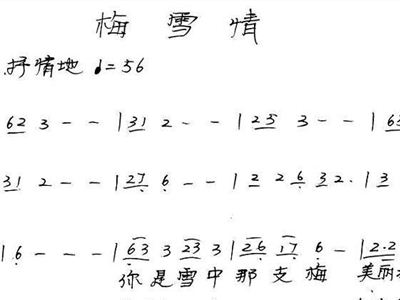 梅雪情
抒情地 ♩=56
62 3 - - | 31 2 - - | 25 3 - - | 63
31 2 - - | 27 6 - - | 2 2 6 32. | 3
| 6 - - - | 63 3 23 3 | 26 17 6 - | 2.2
你是雪中那支梅 美丽